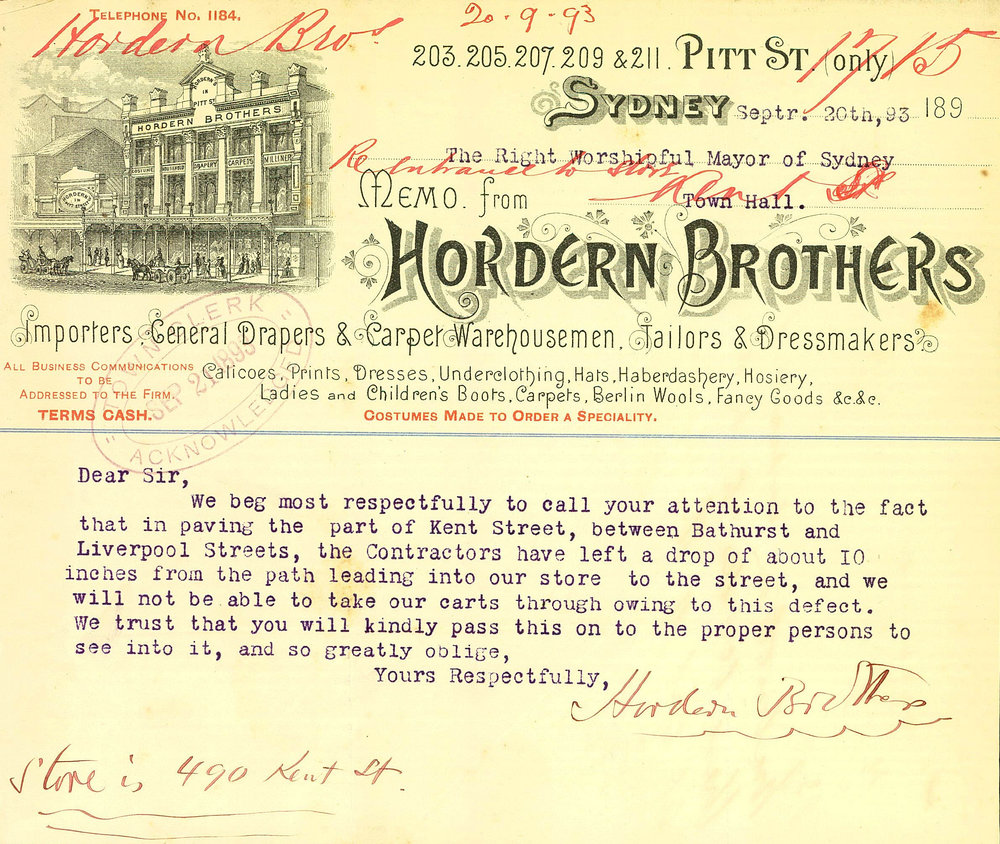 TELEPHONE No. 1184.
Hordern Bros
20-9-93
203.205.207.209 & 211. PITT ST. (only)
SYDNEY Septr. 20th,93 189
HORDERN'S
IN
PITT ST
HORDERN BROTHERS
DRAPERY CARPETS MILLINERY
The Right Worshipful Mayor of Sydney
Re entrance to store
Kent St
MEMO. from Town Hall.
HORDERN BROTHERS
Importers, General Drapers & Carpet Warehousemen, Tailors & Dressmakers.
ALL BUSINESS COMMUNICATIONS
TO BE
ADDRESSED TO THE FIRM.
TERMS CASH.
Calicoes, Prints, Dresses, Underclothing, Hats, Haberdashery, Hosiery,
Ladies and Children's Boots, Carpets, Berlin Wools, Fancy Goods &c.&c.
COSTUMES MADE TO ORDER A SPECIALITY.
"TOWN CLERK"
SEP 21 1893
ACKNOWLEDGED
Dear Sir,
We beg most respectfully to call your attention to the fact
that in paving the part of Kent Street, between Bathurst and
Liverpool Streets, the Contractors have left a drop of about IO
inches from the path leading into our store to the street, and we
will not be able to take our carts through owing to this defect.
We trust that you will kindly pass this on to the proper persons to
see into it, and so greatly oblige,
Yours Respectfully,
Hordern Brothers
Store is 490 Kent St.